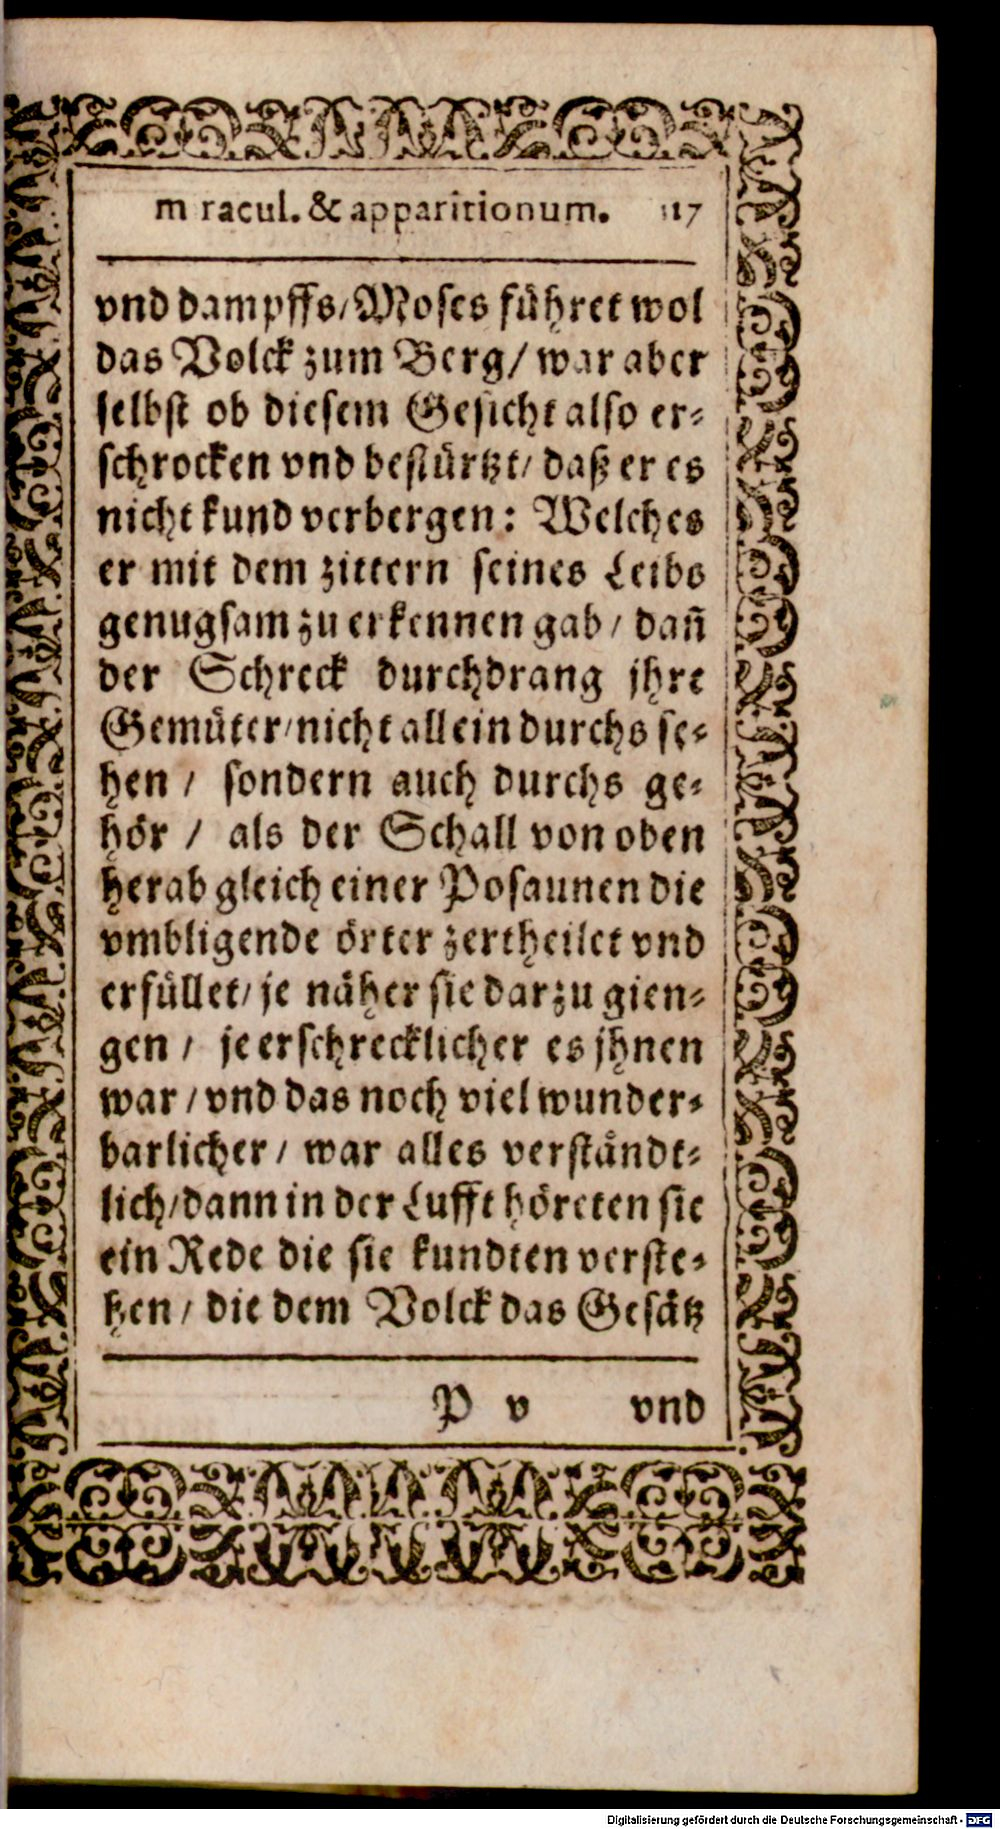 m racul. & apparitionum. 117
vnd dampffs/Moses führet wol
das Volck zum Berg/ war aber
selbst ob diesem Gesicht also er-
schrocken vnd bestürtzt/ daß er es
nicht kund verbergen: Welches
er mit dem zittern seines Leibs
genugsam zu erkennen gab/ dañ
der Schreck durchdrang jhre
Gemüter/nicht allein durchs se-
hen/ sondern auch durchs ge-
hör/ als der Schall von oben
herab gleich einer Posaunen die
vmbligende örter zertheilet vnd
erfüllet/ je näher sie darzu gien-
gen/ je erschrecklicher es jhnen
war/ vnd das noch viel wunder-
barlicher/ war alles verständt-
lich/dann in der Lufft höreten sie
ein Rede die sie kundten verste-
hen/ die dem Volck das Gesätz
P v vnd
Digitalisierung gefördert durch die Deutsche Forschungsgemeinschaft - DFG